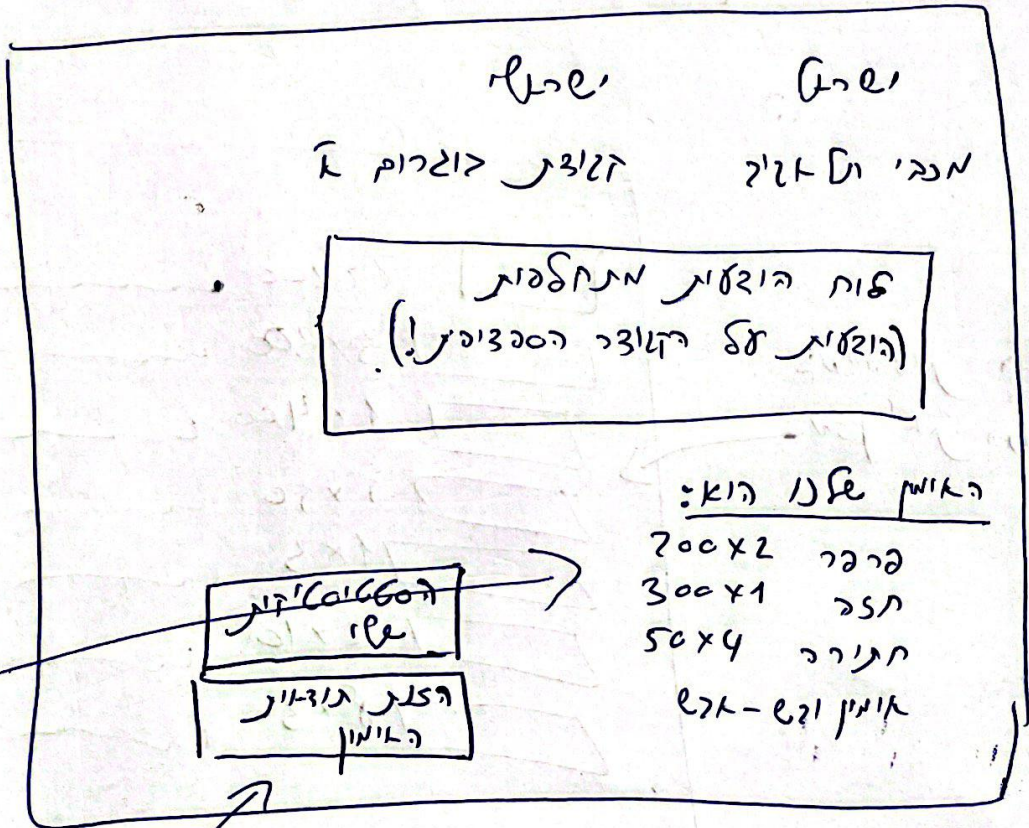 ישראל ישראלי
מכבי תל אביב קבוצת בוגרים א'
לוח הודעות מתחלפות
(הודעות על הקבוצה הספציפית!)
האימון שלנו הוא:
פרפר 200x2
חזה 300x1
חתירה 50x4
אימון יבש - אבש
הסטטיסטיקות
שלי
הזנת תוצאות
האימון